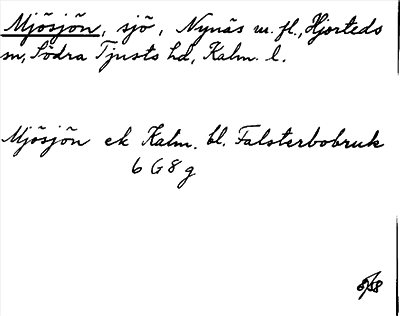 Mjösjön, sjö, Nynäs m. fl., Hjorteds
sn, Södra Tjusts hd, Kalm. l.
Mjösjön ek Kalm. bl. Falsterbobruk
6 G 8 g